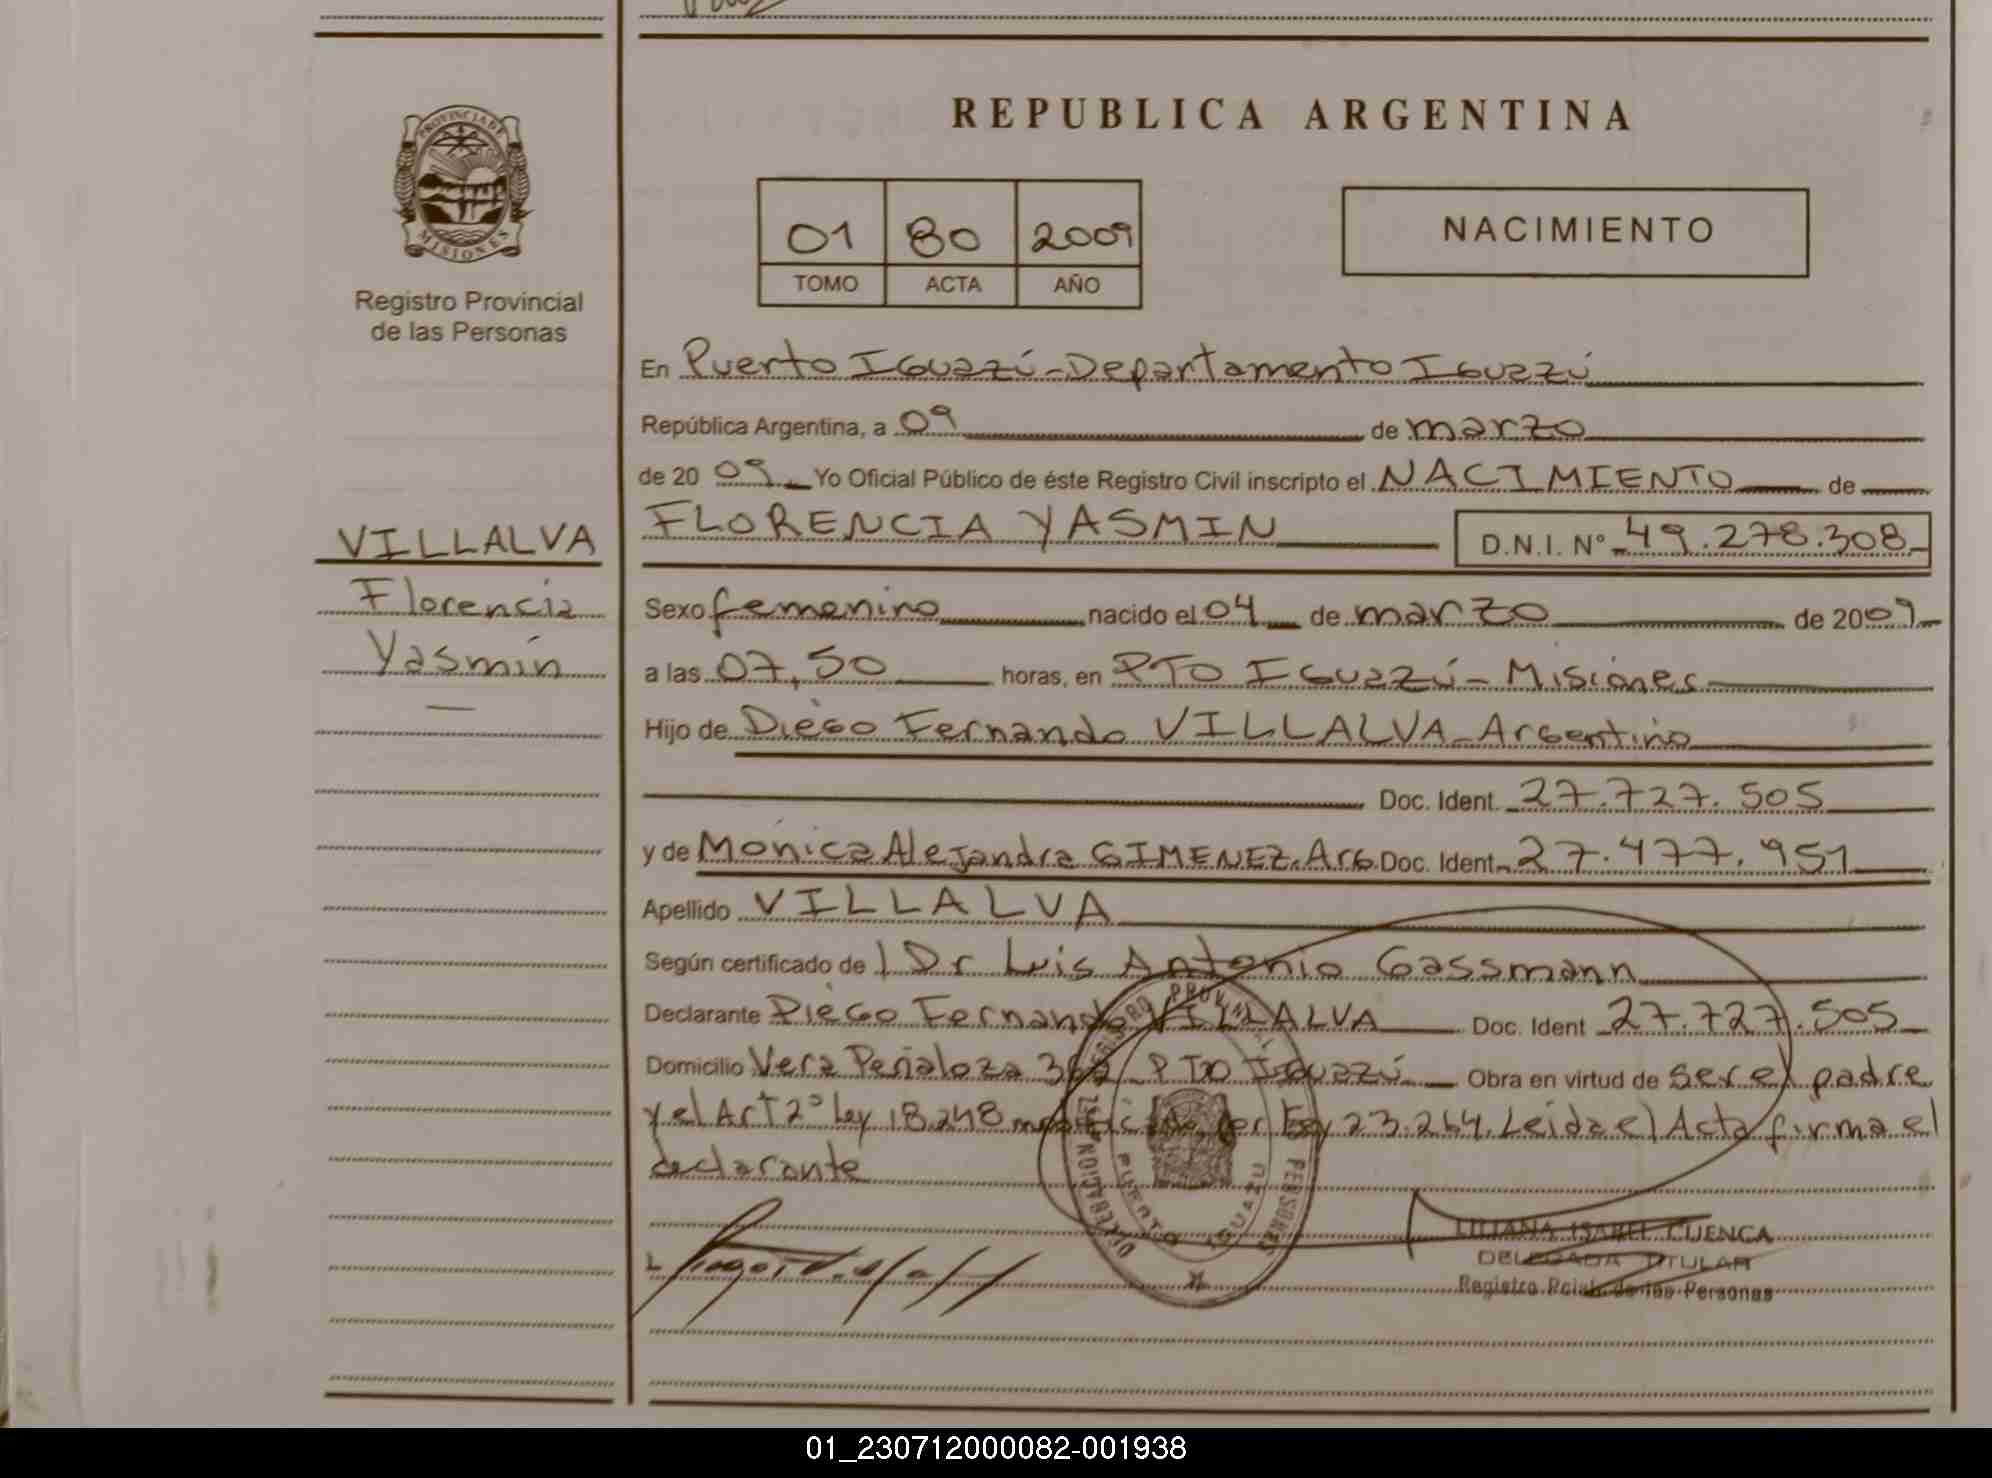 REPUBLICA ARGENTINA
PROVINCIA DE
MISIONES
Registro Provincial
de las Personas
01 80 2009
TOMO ACTA AÑO
NACIMIENTO
VILLALVA
Florencia
Yasmin
En Puerto Iguazú-Departamento Iguazú
República Argentina, a 09 de marzo
de 20 09 Yo Oficial Público de éste Registro Civil inscripto el NACIMIENTO de
FLORENCIA YASMIN D.N.I. N° 49.278.308
Sexo femenino nacido el 04 de marzo de 2009
a las 07,50 horas, en PTO Iguazú - Misiones
Hijo de Diego Fernando VILLALVA - Argentino
Doc. Ident. 27.727.505
y de Mónica Alejandra GIMENEZ. Arg Doc. Ident. 27.477.951
Apellido VILLALVA
Según certificado de Dr Luis Antonio Gassmann
Declarante Diego Fernando VILLALVA Doc. Ident 27.727.505
Domicilio Vera Peñaloza PTO Iguazú Obra en virtud de ser el padre
y el Art 2° Ley 18.248 por Ley 23.264. Leida el Acta firma el
declarante
REGISTRO PROVINCIAL PERSONAS
PUERTO IGUAZU
LILIANA ISABEL CUENCA
DELEGADA TITULAR
Registro Pcial. de las Personas
01_230712000082-001938